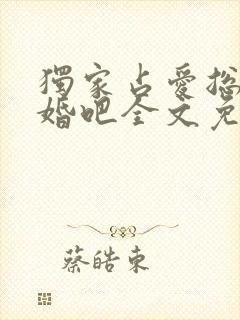 獨家占愛總
婚吧全文免
蔡皓東